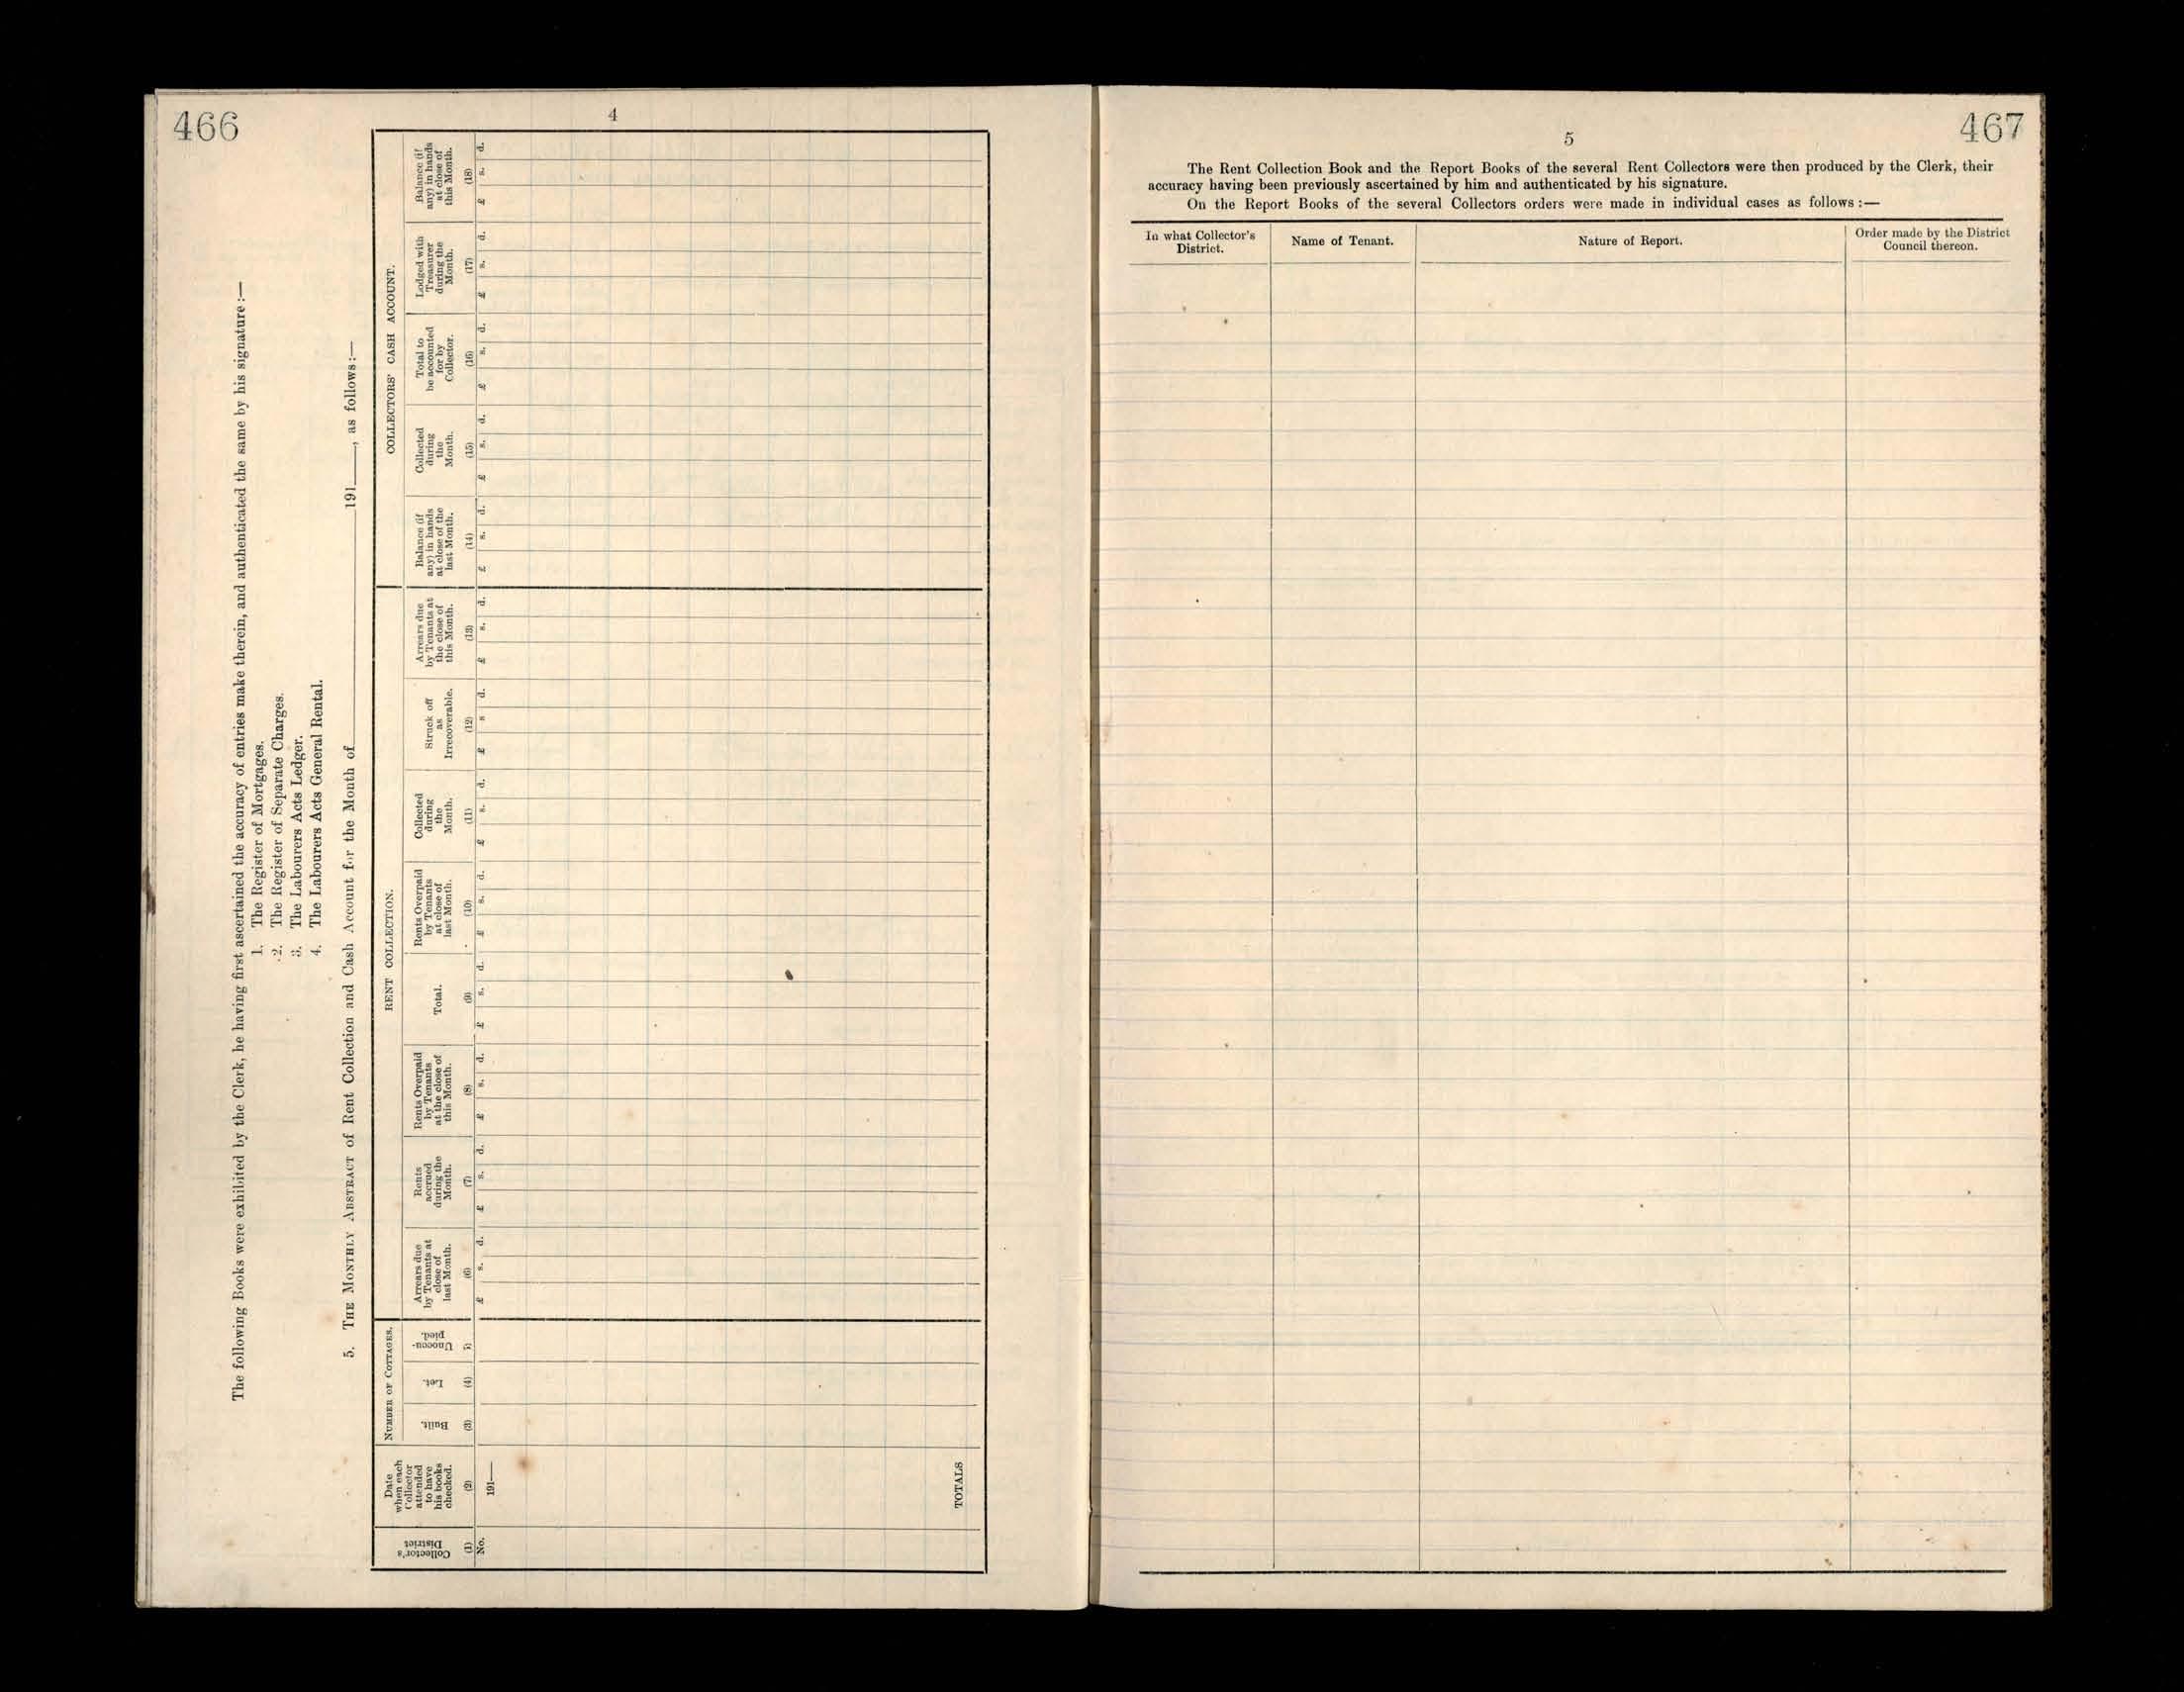 466
4
The following Books were exhibited by the Clerk, he having first ascertained the accuracy of entries make therein, and authenticated the same by his signature :—
1. The Register of Mortgages.
2. The Register of Separate Charges.
3. The Labourers Acts Ledger.
4. The Labourers Acts General Rental.
5. THE MONTHLY ABSTRACT of Rent Collection and Cash Account for the Month of 191 , as follows:—
Collector's
District
(1)
No.
Date
when each
Collector
attended
to have
his books
checked.
(2)
191—
TOTALS
NUMBER OF COTTAGES.
Built.
(3)
Let.
(4)
Unoccu-
pied.
5
RENT COLLECTION.
Arrears due
by Tenants at
close of
last Month.
(6)
£ s. d.
Rents
accrued
during the
Month.
(7)
£ s. d.
Rents Overpaid
by Tenants
at the close of
this Month.
(8)
£ s. d.
Total.
(9)
£ s. d.
Rents Overpaid
by Tenants
at close of
last Month.
(10)
£ s. d.
Collected
during
the
Month.
(11)
£ s. d.
Struck off
as
Irrecoverable.
(12)
£ s d.
Arrears due
by Tenants at
the close of
this Month.
(13)
£ s. d.
COLLECTORS' CASH ACCOUNT.
Balance (if
any) in hands
at close of the
last Month.
(14)
£ s. d.
Collected
during
the
Month.
(15)
£ s. d.
Total to
be accounted
for by
Collector.
(16)
£ s. d.
Lodged with
Treasurer
during the
Month.
(17)
£ s. d.
Balance (if
any) in hands
at close of
this Month.
(18)
£ s. d.
467
5
The Rent Collection Book and the Report Books of the several Rent Collectors were then produced by the Clerk, their
accuracy having been previously ascertained by him and authenticated by his signature.
On the Report Books of the several Collectors orders were made in individual cases as follows :—
In what Collector's
District.
Name of Tenant.
Nature of Report.
Order made by the District
Council thereon.